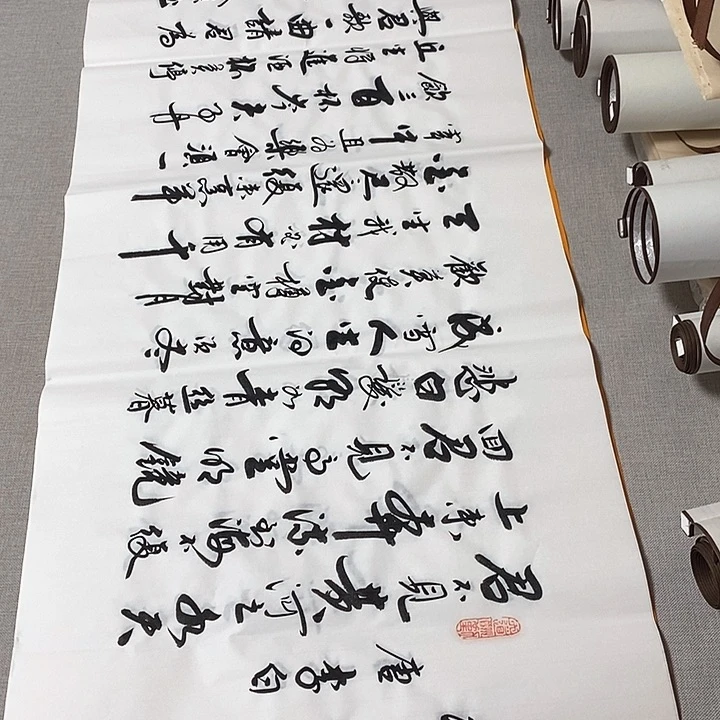 唐李白
君不見黃河之水天
上来奔流到海不復
回君不見高堂明鏡
悲白髮朝如青絲暮
成雪人生得意須尽
歡莫使金樽空對月
天生我材必有用千
金散尽還復来烹羊
宰牛且為樂會須一
飲三百杯岑夫子丹
丘生将進酒杯莫停
與君歌一曲請君為